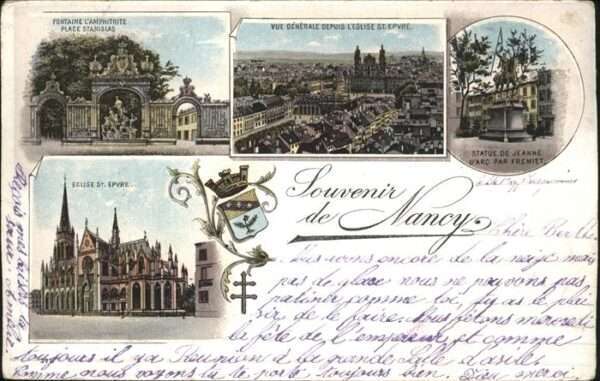 FONTAINE L'AMPHITRITE
PLACE STANISLAS
VUE GÉNÉRALE DEPUIS L'EGLISE ST. EPVRE.
STATUE DE JEANNE
D'ARC PAR FREMIET.
EGLISE ST. EPVRE.
Souvenir
de Nancy
Chère Berthe
Nous avons encore de la neige mais
pas de glace nous ne pouvons pas
patiner comme toi, tu as le plai
sir de le faire. Nous fêtons mercredi
la fête de l'empereur et comme
toujours il y a Réunion à la grande Salle d'asile
comme nous voyons la te porte toujours bien.